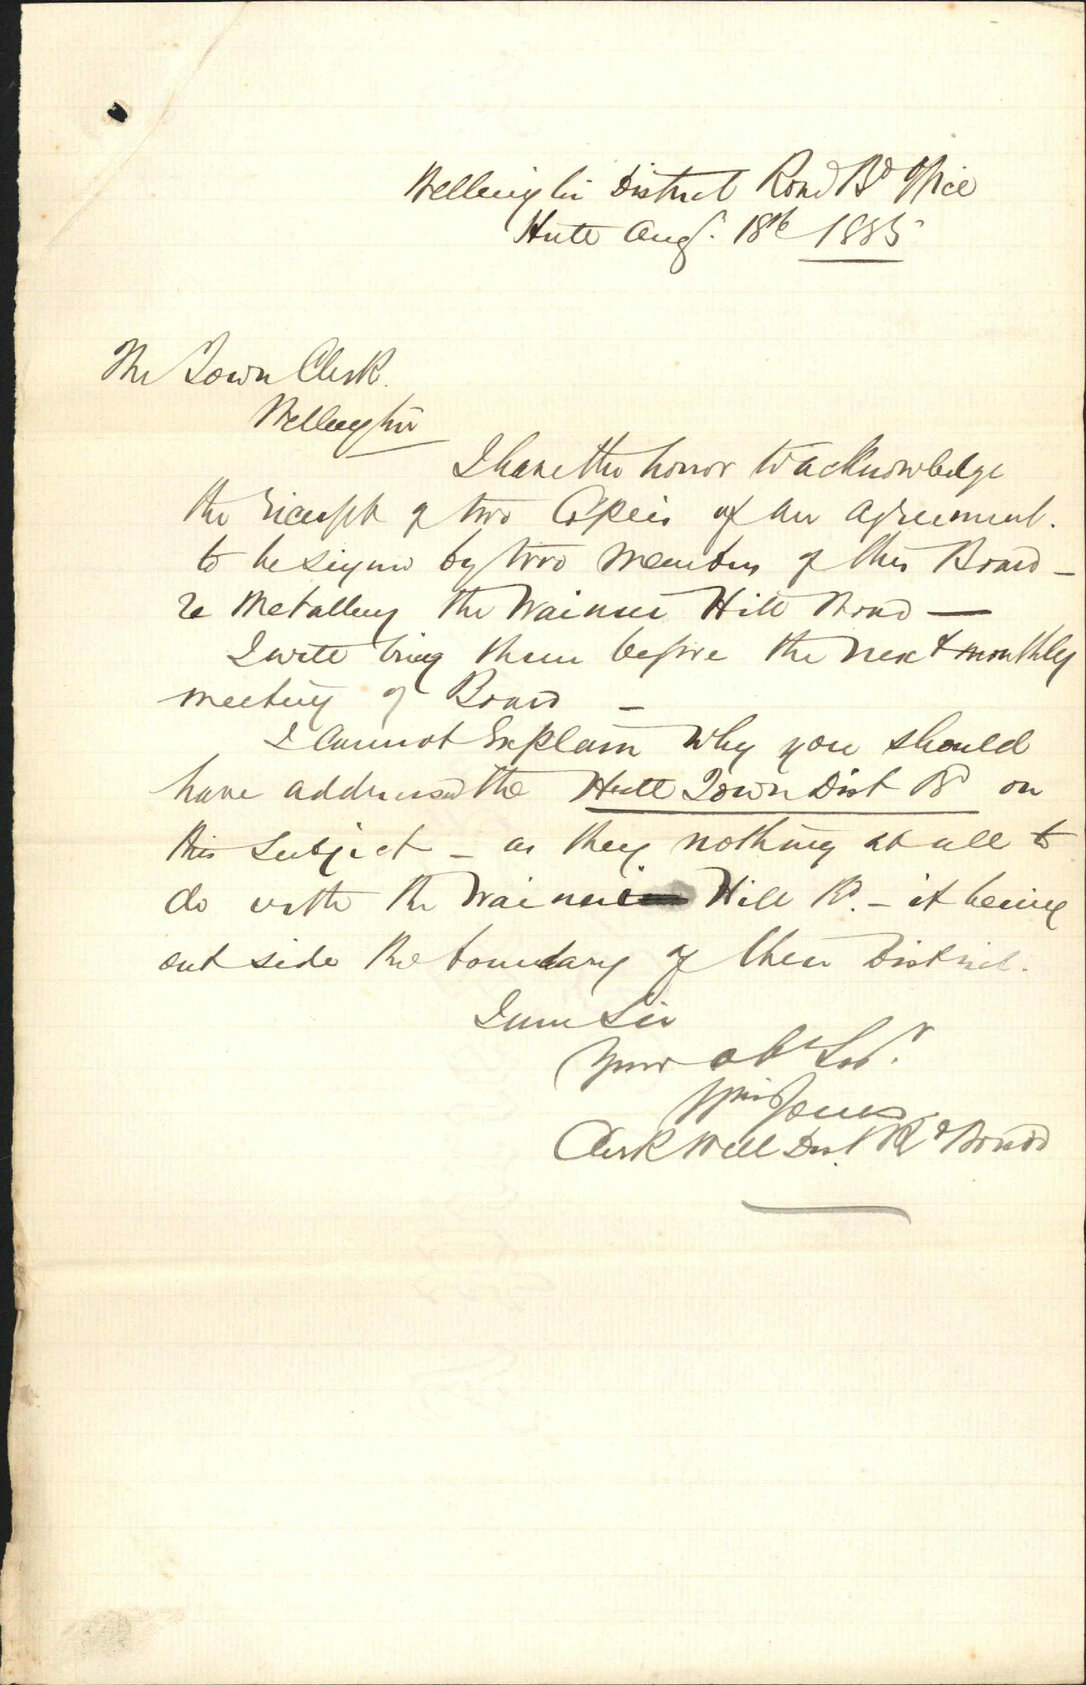 Wellington District Road Bd Office
Hutt Augt. 18th 1885
The Town Clerk.
Wellington
I have the honor to acknowledge
the receipt of two Copies of an agreement.
to be signed by two members of this Board –
re Metalling the Wainui Hill Road —
I will bring them before the next monthly
meeting of Board –
I cannot Explain why you should
have addressed the Hutt Town Dist Bd on
this subject – as they nothing at all to
do with the Wainui Hill Rd. – it being
out side the boundary of their District.
I am Sir
Your obt Servt.
Wm Jones
Clerk Well Dist Rd Board